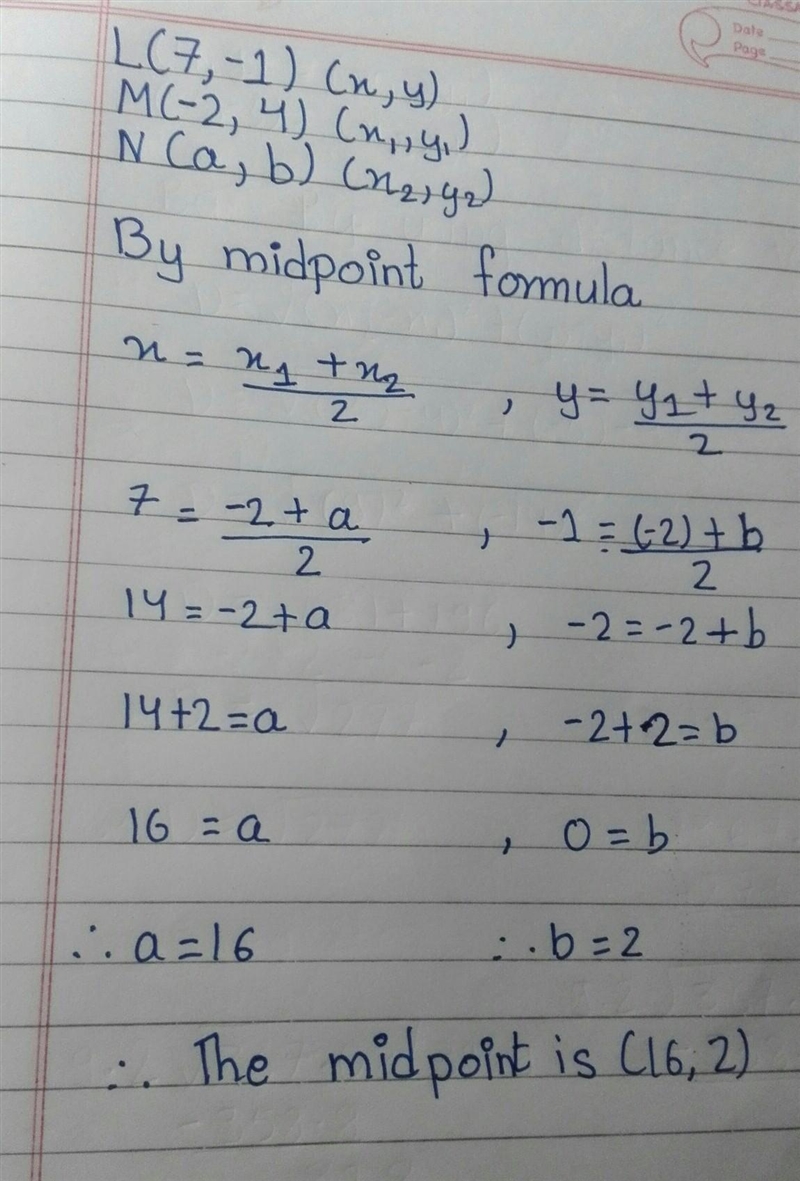 CLASSM
Date
Page
L(7,-1) (x,y)
M(-2, 4) (x₁,y₁)
N (a, b) (x₂,y₂)
By midpoint formula
x = x₁ + x₂ / 2 , y = y₁ + y₂ / 2
7 = -2 + a / 2 , -1 = (-2) + b / 2
14 = -2 + a , -2 = -2 + b
14+2 = a , -2+2 = b
16 = a , 0 = b
∴ a = 16 ∴ b = 2
∴ The midpoint is (16, 2)